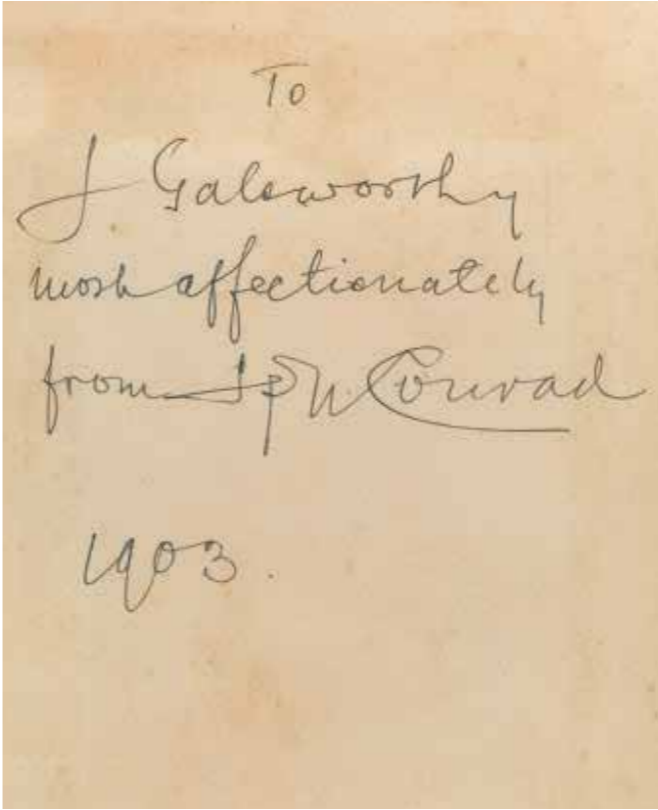 To
J Galsworthy
most affectionately
from Jph. Conrad
1903.